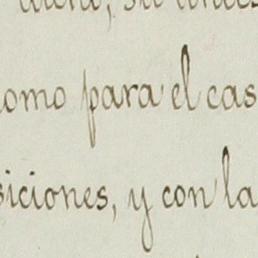 omo para el cas
siciones, y con la